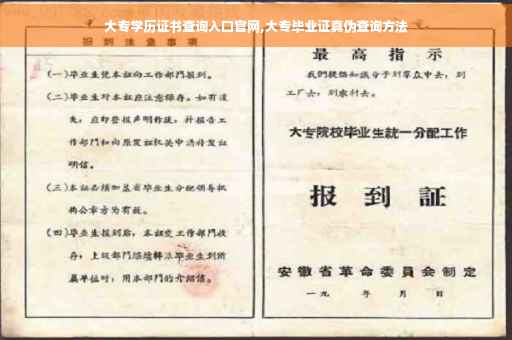 大专学历证书查询入口官网,大专毕业证真伪查询方法
报到注意事项
(一)毕业生凭本证向工作部门报到。
(二)毕业生对本证应注意保存。如有遗
失,应即登报声明作废,并报告工
作部门和向原发证机关申请补发证
明信。
(三)本证必须加盖省毕业生分配领导机
构公章方为有效。
(四)毕业生报到后,本证交工作部门收
存;上级部门继续转派毕业生到所
属单位时,用本部门的介绍信。
最高指示
我们提倡知识分子到群众中去,到
工厂去,到农村去。
大专院校毕业生統一分配工作
报到証
安徽省革命委員会制定
一九 年 月 日